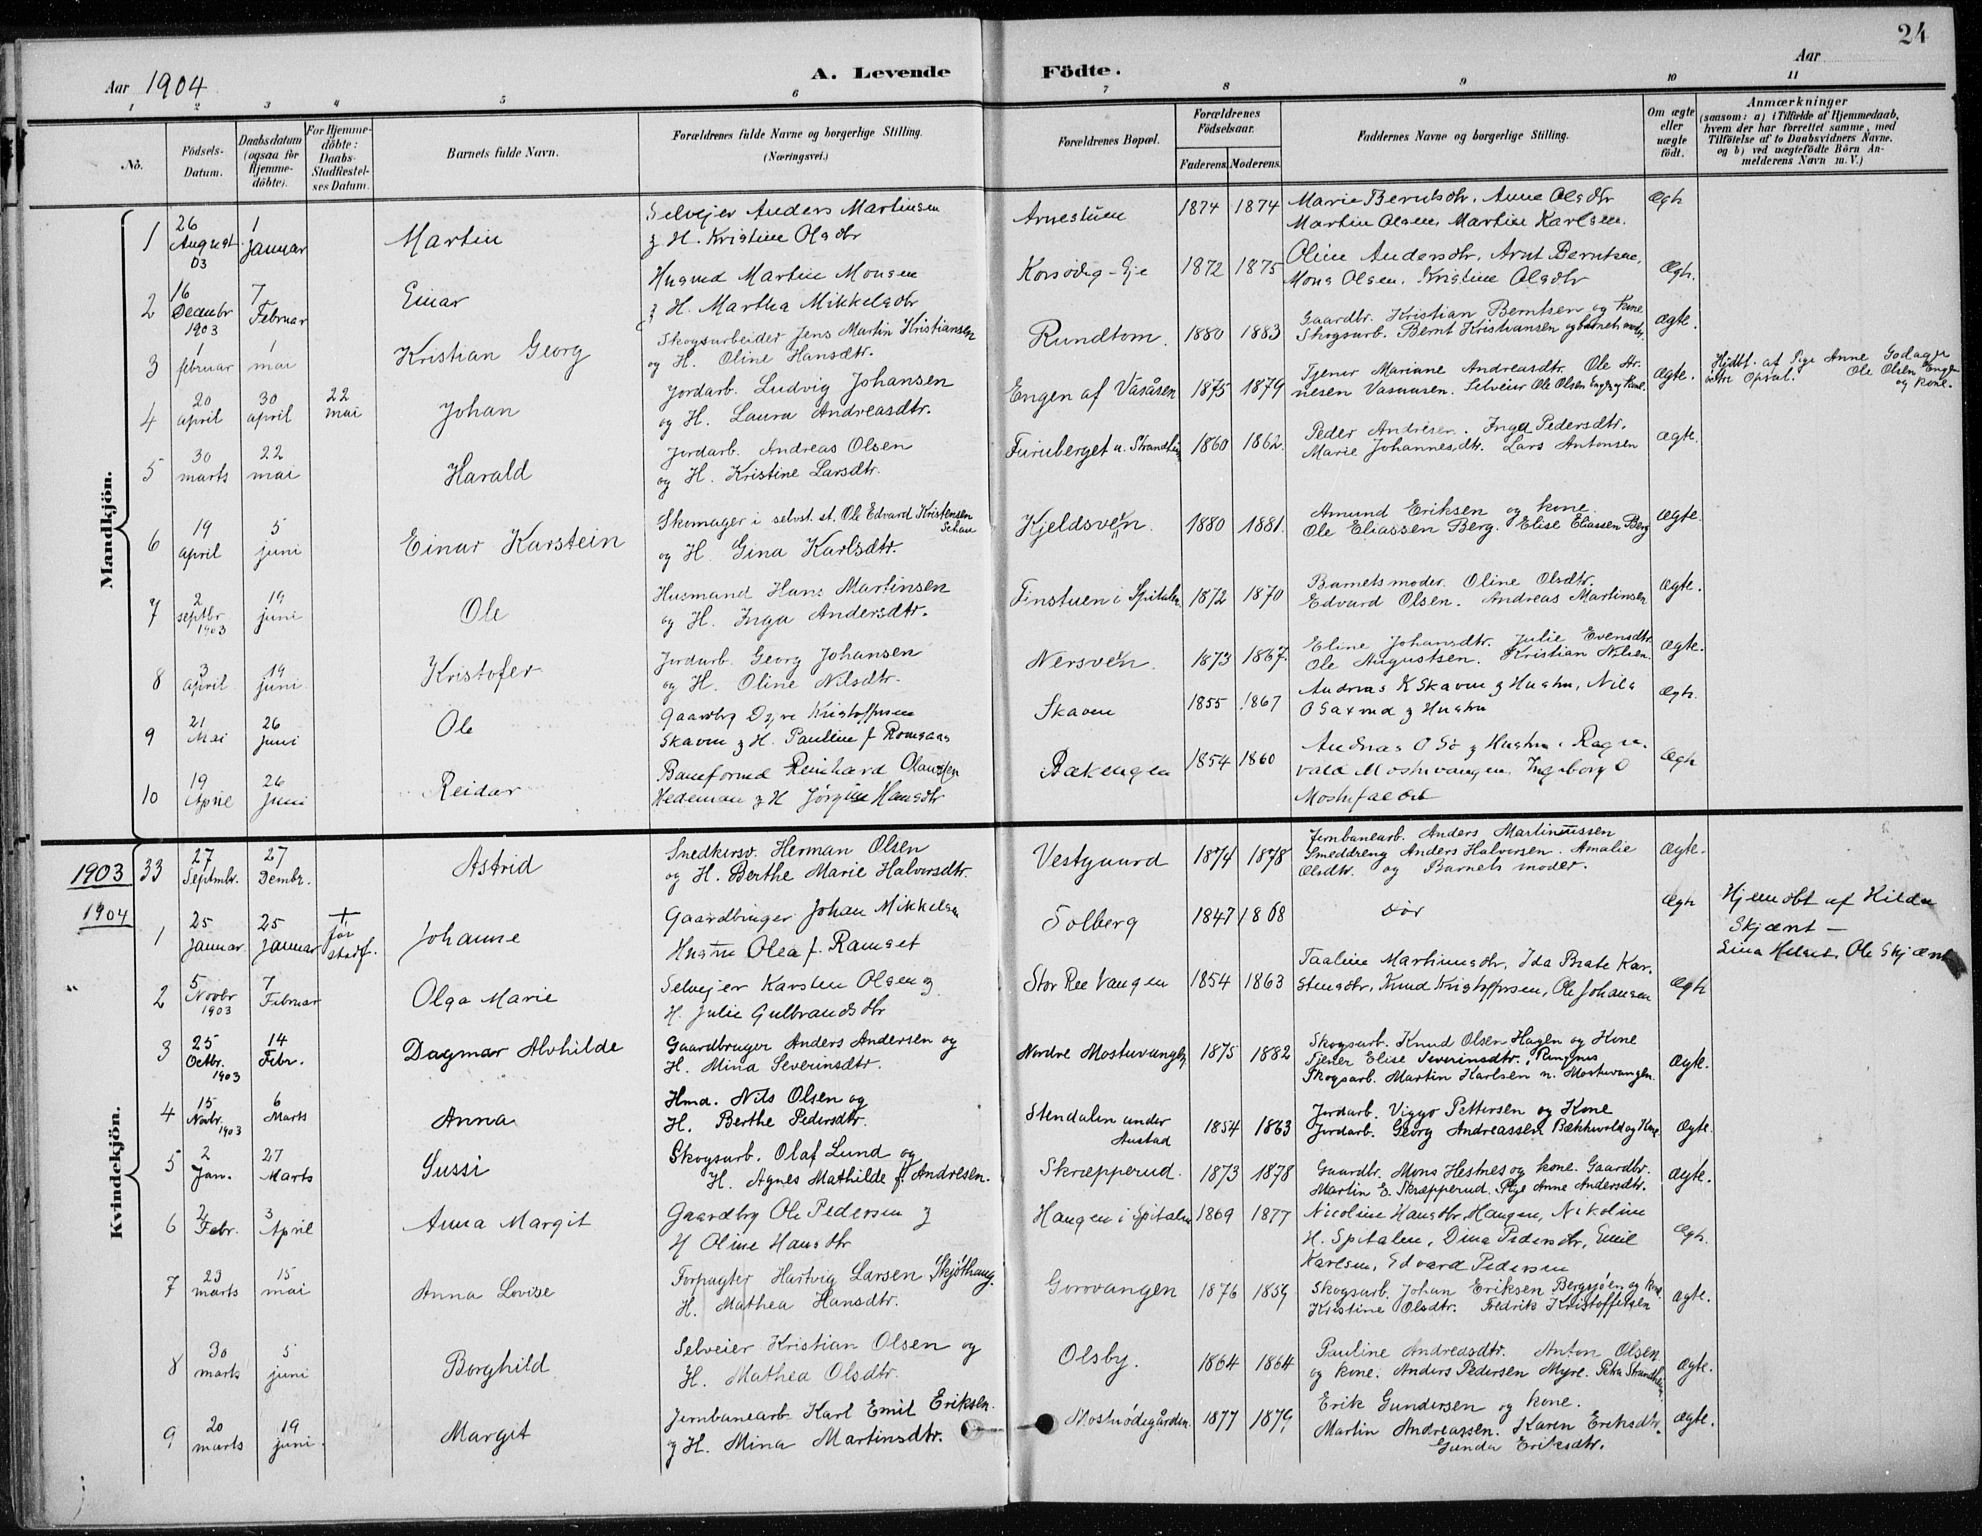 24
Aar 1904
A. Levende Födte.
Aar
1 2 3 4 5 6 7 8 9 10 11
No.
Födsels-Datum.
Daabsdatum (ogsaa for Hjemme-döbte).
For Hjemme-döbte: Daabs-Stadfestel-ses Datum.
Barnets fulde Navn.
Forældrenes fulde Navne og borgerlige Stilling. (Næringsvei.)
Forældrenes Bopæl.
Forældrenes Födselsaar.
Faderens. Moderens.
Faddernes Navne og borgerlige Stilling.
Om ægte eller uægte födt.
Anmærkninger
(saasom: a) i Tilfælde af Hjemmedaab, hvem der har forrettet samme, med Tilföielse af to Daabsvidners Navne, og b) ved uægtefödte Börn An-melderens Navn m. V.)
Mandkjön.
1 26 August 03 1 Januar Martin Selvejer Anders Martinsen
& H. Kristine Olsdtr Arnestuen 1874 1874 Marie Berntsdtr, Anne Olsdtr
Martin Olsen, Martin Karlsen. Ægte
2 16 Decembr 1903 7 Februar Einar Husmd Martin Monsen
& H. Martha Mikkelsdtr Korsödeg-Eje 1872 1875 Oline Andersdtr, Arnt Berntsen,
Mons Olsen, Kristine Olsdtr Ægte.
3 1 februar 1 mai Kristian Georg Skogsarbeider Jens Martin Kristiansen
og H. Oline Hansdtr. Rundtom. 1880 1883 Gaardbr. Kristian Berntsen og kone
Skogsarb. Bernt Kristiansen og barnets moder Ægte.
4 20 april 30 april 22 mai Johan Jordarb. Ludvig Johansen
og H. Laura Andreasdtr. Engen af Vasåsen 1875 1879 Tjener Mariane Andreasdtr. Ole
Vasaasen. Selveier Ole Olsen Engen og Kone. Ægte. Hjdbt. af Pige Anne Godager
Opsal. Ole Olsen Engen
og Kone.
5 30 marts 22 mai Harald Jordarb. Andreas Olsen
og H. Kristine Larsdtr. Furuberget u. Strandheim 1860 1862. Peder Andresen. Inga Pedersdtr.
Marie Johannesdtr. Lars Antonsen Ægte.
6 19 april 5 juni Einar Karstein Skomager i selvst. st. Ole Edvard Kristensen
Schau
og H. Gina Karlsdtr. Kjeldsveen. 1880 1881. Amund Eriksen og kone.
Ole Eliassen Berg. Elise Eliassen Berg Ægte.
7 2 septbr 1903 19 juni Ole Husmand Hans Martinsen
og H. Inga Andersdtr. Finstuen i Spitalen 1872 1870 Barnets moder. Oline Olsdtr.
Edvard Olsen. Andreas Martinsen Ægte.
8 3 april 19 juni. Kristofer Jordarb. Georg Johansen
og H. Oline Nilsdtr. Nersveen. 1873 1867. Eline Johansdtr. Julie Evensdtr.
Ole Augustsen. Kristian Nilsen. Ægte.
9 21 Mai 26 Juni Ole Gaardbg Kristoffersen
Skaven & H. Pauline f Romsaas Skaven 1855 1867 Andreas K Skaven & Hustru, Nils
O & Hustru Ægte.
10 19 April 26 Juni Reidar Baneformd Reinhard Olaussen
Hedeman & H Jørgine Hansdtr Bækengen 1854 1860 Andreas O & Hustru, Ragn-
vald Mostuvangen, Ingeborg O
Ægte
1903 33 27 Septmbr. 27 Dembr. Astrid Snedkersv. Herman Olsen
og H. Berthe Marie Halvorsdtr. Vestgaard 1874 1878 Jernbanearb. Anders Martinussen
Smeddreng Anders Halvorsen. Amalie
Olsdtr. og Barnets moder. Ægte.
1904
Kvindekjön.
1 25 Januar 25 Januar + før stadf. Johanne Gaardbruger Johan Mikkelsen
Hustru Olea f. Ramset Solberg 1847 1868 Dør Ægte Hjemdbt af Hilda
Skjænt –
Ole Skjænt
2 5 Novbr 1903 7 Februar Olga Marie Selvejer Karsten Olsen &
H. Julie Gulbrandsdtr Stor Ree Vangen 1854 1863 Martinusdtr, Ida Beate Kar-
stensdtr, Knud Kristoffersen, Ole Johansen Ægte
3 25 Octbr. 1903 14 Febr. Dagmar Alvhilde Gaardbruger Anders Andersen og
H. Mina Severinsdtr. Nordre Mostuvangen 1875 1882 Skogsarb. Knud Olsen Hagen og Kone
Tjener Elise Severinsdtr., Ringnes
Skogsarb. Martin Karlsen n. Mostuvangen. Ægte.
4 15 Novbr. 1903 6 Marts Anna Hmd. Nils Olsen og
H. Berthe Pedersdtr. Stendalen under
Austad 1854 1863 Jordarb. Viggo Pettersen og Kone
Jordarb. Georg Andreassen Bækkevold og Kone Ægte.
5 2 Jan. 27 Marts Sussi Skogsarb. Olaf Lund og
H. Agnes Mathilde f. Andresen. Skræpperud. 1873 1878 Gaardbr. Mons Hestnes og kone. Gaardbr.
Martin E. Skræpperud. Pige Anne Andersdtr. Ægte.
6 2 Febr. 3 April Anna Margit Gaardbg Ole Pedersen &
H Oline Hansdtr Haugen i Spitalen 1869 1877 Nicoline Hansdtr, Haugen, Nikoline
H. Spitalen, Dina Pedersdtr, Emil
Karlsen, Edvard Pedersen Ægte.
7 23 marts 15 mai Anna Lovise Forpagter Hartvig Larsen Skjøthaug.
H. Mathea Hansdtr. Gorovangen 1876 1859 Skogsarb. Johan Eriksen Bergsjøen og kone.
Kristine Olsdtr. Fredrik Kristoffersen Ægte.
8 30 marts 5 juni Borghild Selveier Kristian Olsen og
H. Mathea Olsdtr. Olsby. 1864 1864 Pauline Andreasdtr. Anton Olsen
og kone. Anders Pedersen Myre. Petra Strandheim Ægte.
9 20 marts 19 juni. Margit Jernbanearb. Karl Emil Eriksen.
& H. Mina Martinsdtr. Mostuødegården 1877 1879 Erik Gundersen og kone.
Martin Andreassen. Karen Eriksdtr.
Gunda Eriksdtr. Ægte.